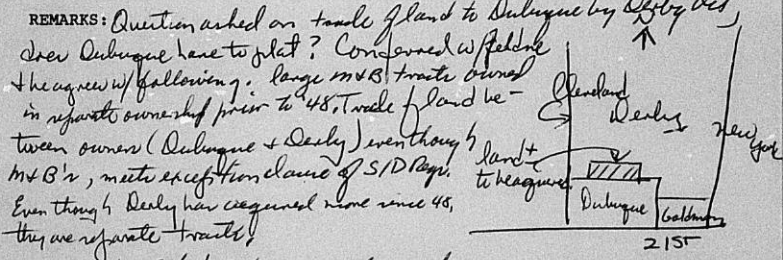 REMARKS: Question asked on trade of land to Dubuque by Derby Oil,
does Dubuque have to plat? Conferred w/
& he agrees w/ following. large m&B tracts owned
in separate ownership prior to '48. Trade of land be-
tween owners (Dubuque & Derby) even though
M&B's, meets exception clause of S/D Regs.
Even though Derby has acquired more since 48,
they are separate tracts.
Cleveland
Derby
New York
land
to be acquired
Dubuque
Goldman
21st